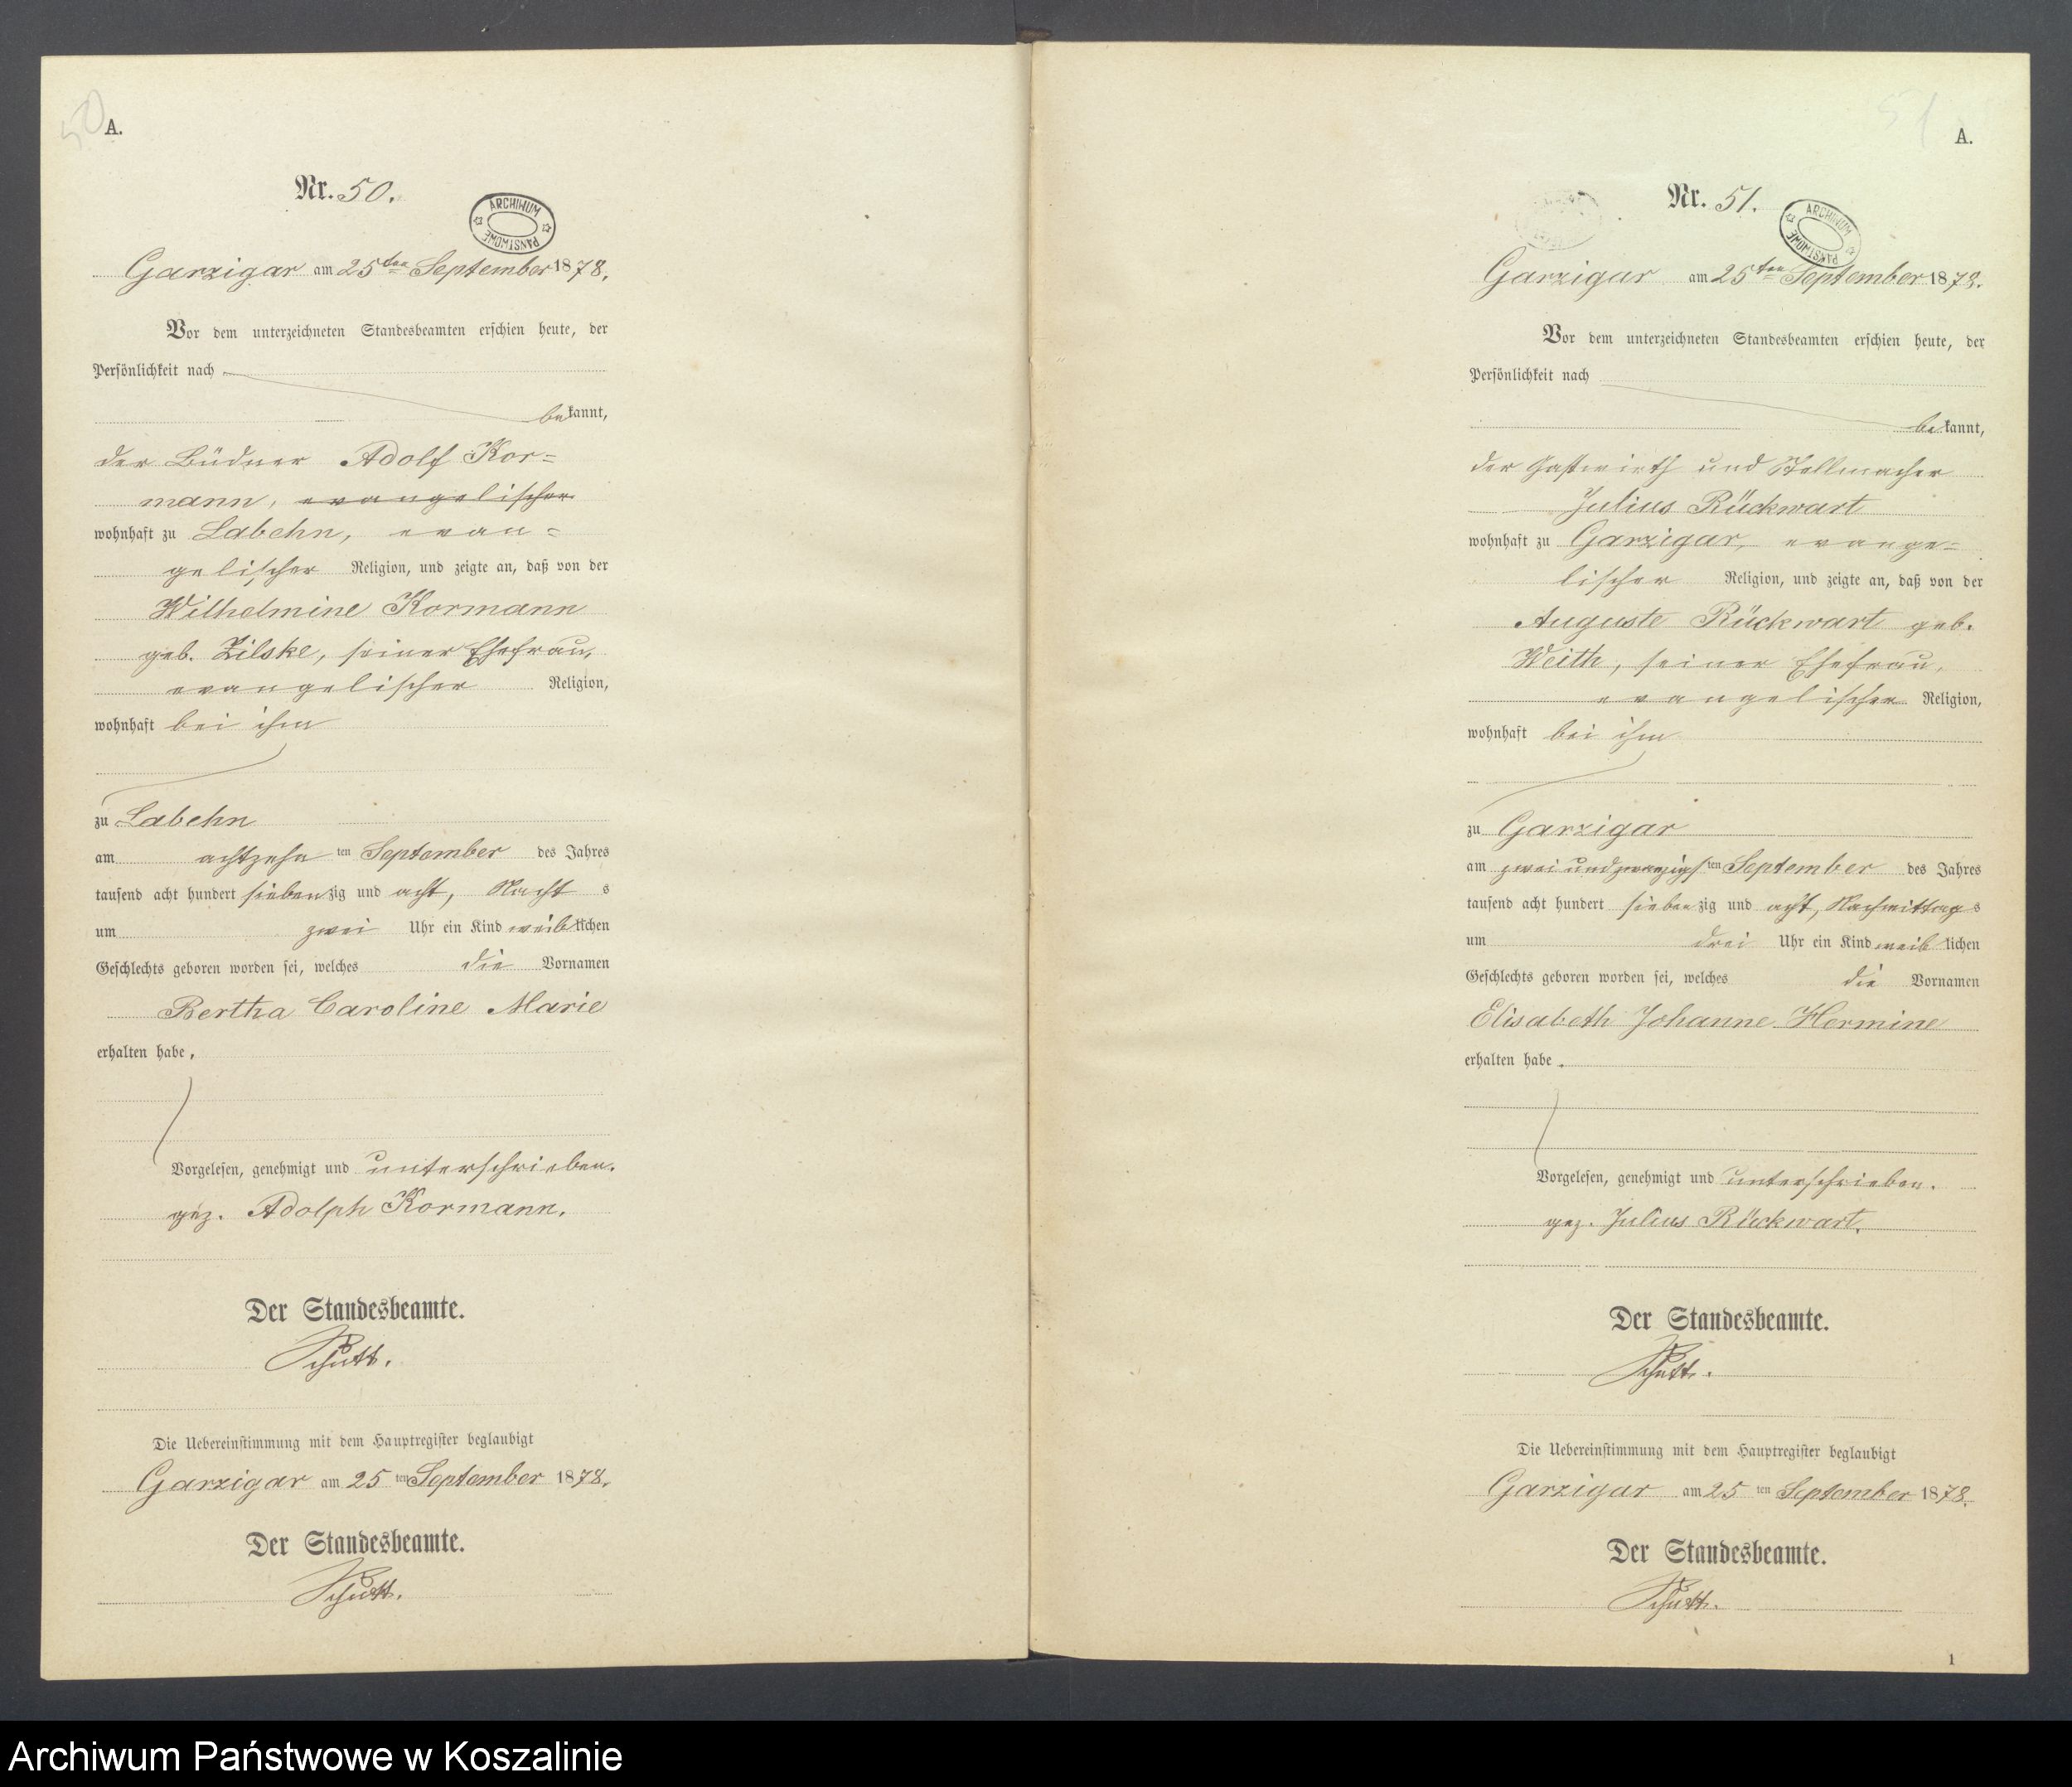 50
A.
Nr. 50.
ARCHIWUM PAŃSTWOWE
Garzigar am 25ten September 1878.
Vor dem unterzeichneten Standesbeamten erschien heute, der
Persönlichkeit nach
bekannt,
der Büdner Adolf Kor=
mann, evangelischer
wohnhaft zu Labehn, evan=
gelischer Religion, und zeigte an, daß von der
Wilhelmine Kormann
geb. Zilske, seiner Ehefrau,
evangelischer Religion,
wohnhaft bei ihm
zu Labehn
am achtzehn ten September des Jahres
tausend acht hundert siebenzig und acht, Nacht s
um zwei Uhr ein Kind weiblichen
Geschlechts geboren worden sei, welches die Vornamen
Bertha Caroline Marie
erhalten habe.
Vorgelesen, genehmigt und unterschrieben.
gez. Adolph Kormann.
Der Standesbeamte.
Schutt.
Die Uebereinstimmung mit dem Hauptregister beglaubigt
Garzigar am 25 ten September 1878.
Der Standesbeamte.
Schutt.
51
A.
Nr. 51.
ARCHIWUM PAŃSTWOWE
Garzigar am 25ten September 1878.
Vor dem unterzeichneten Standesbeamten erschien heute, der
Persönlichkeit nach
bekannt,
der Gastwirth und Stellmacher
Julius Rückwart
wohnhaft zu Garzigar, evange=
lischer Religion, und zeigte an, daß von der
Auguste Rückwart geb.
Weith, seiner Ehefrau,
evangelischer Religion,
wohnhaft bei ihm
zu Garzigar
am zwei und zwanzigs ten September des Jahres
tausend acht hundert siebenzig und acht, Nachmittags
um drei Uhr ein Kind weiblichen
Geschlechts geboren worden sei, welches die Vornamen
Elisabeth Johanne Hermine
erhalten habe.
Vorgelesen, genehmigt und unterschrieben.
gez. Julius Rückwart.
Der Standesbeamte.
Schutt.
Die Uebereinstimmung mit dem Hauptregister beglaubigt
Garzigar am 25 ten September 1878.
Der Standesbeamte.
Schutt.
1
Archiwum Państwowe w Koszalinie